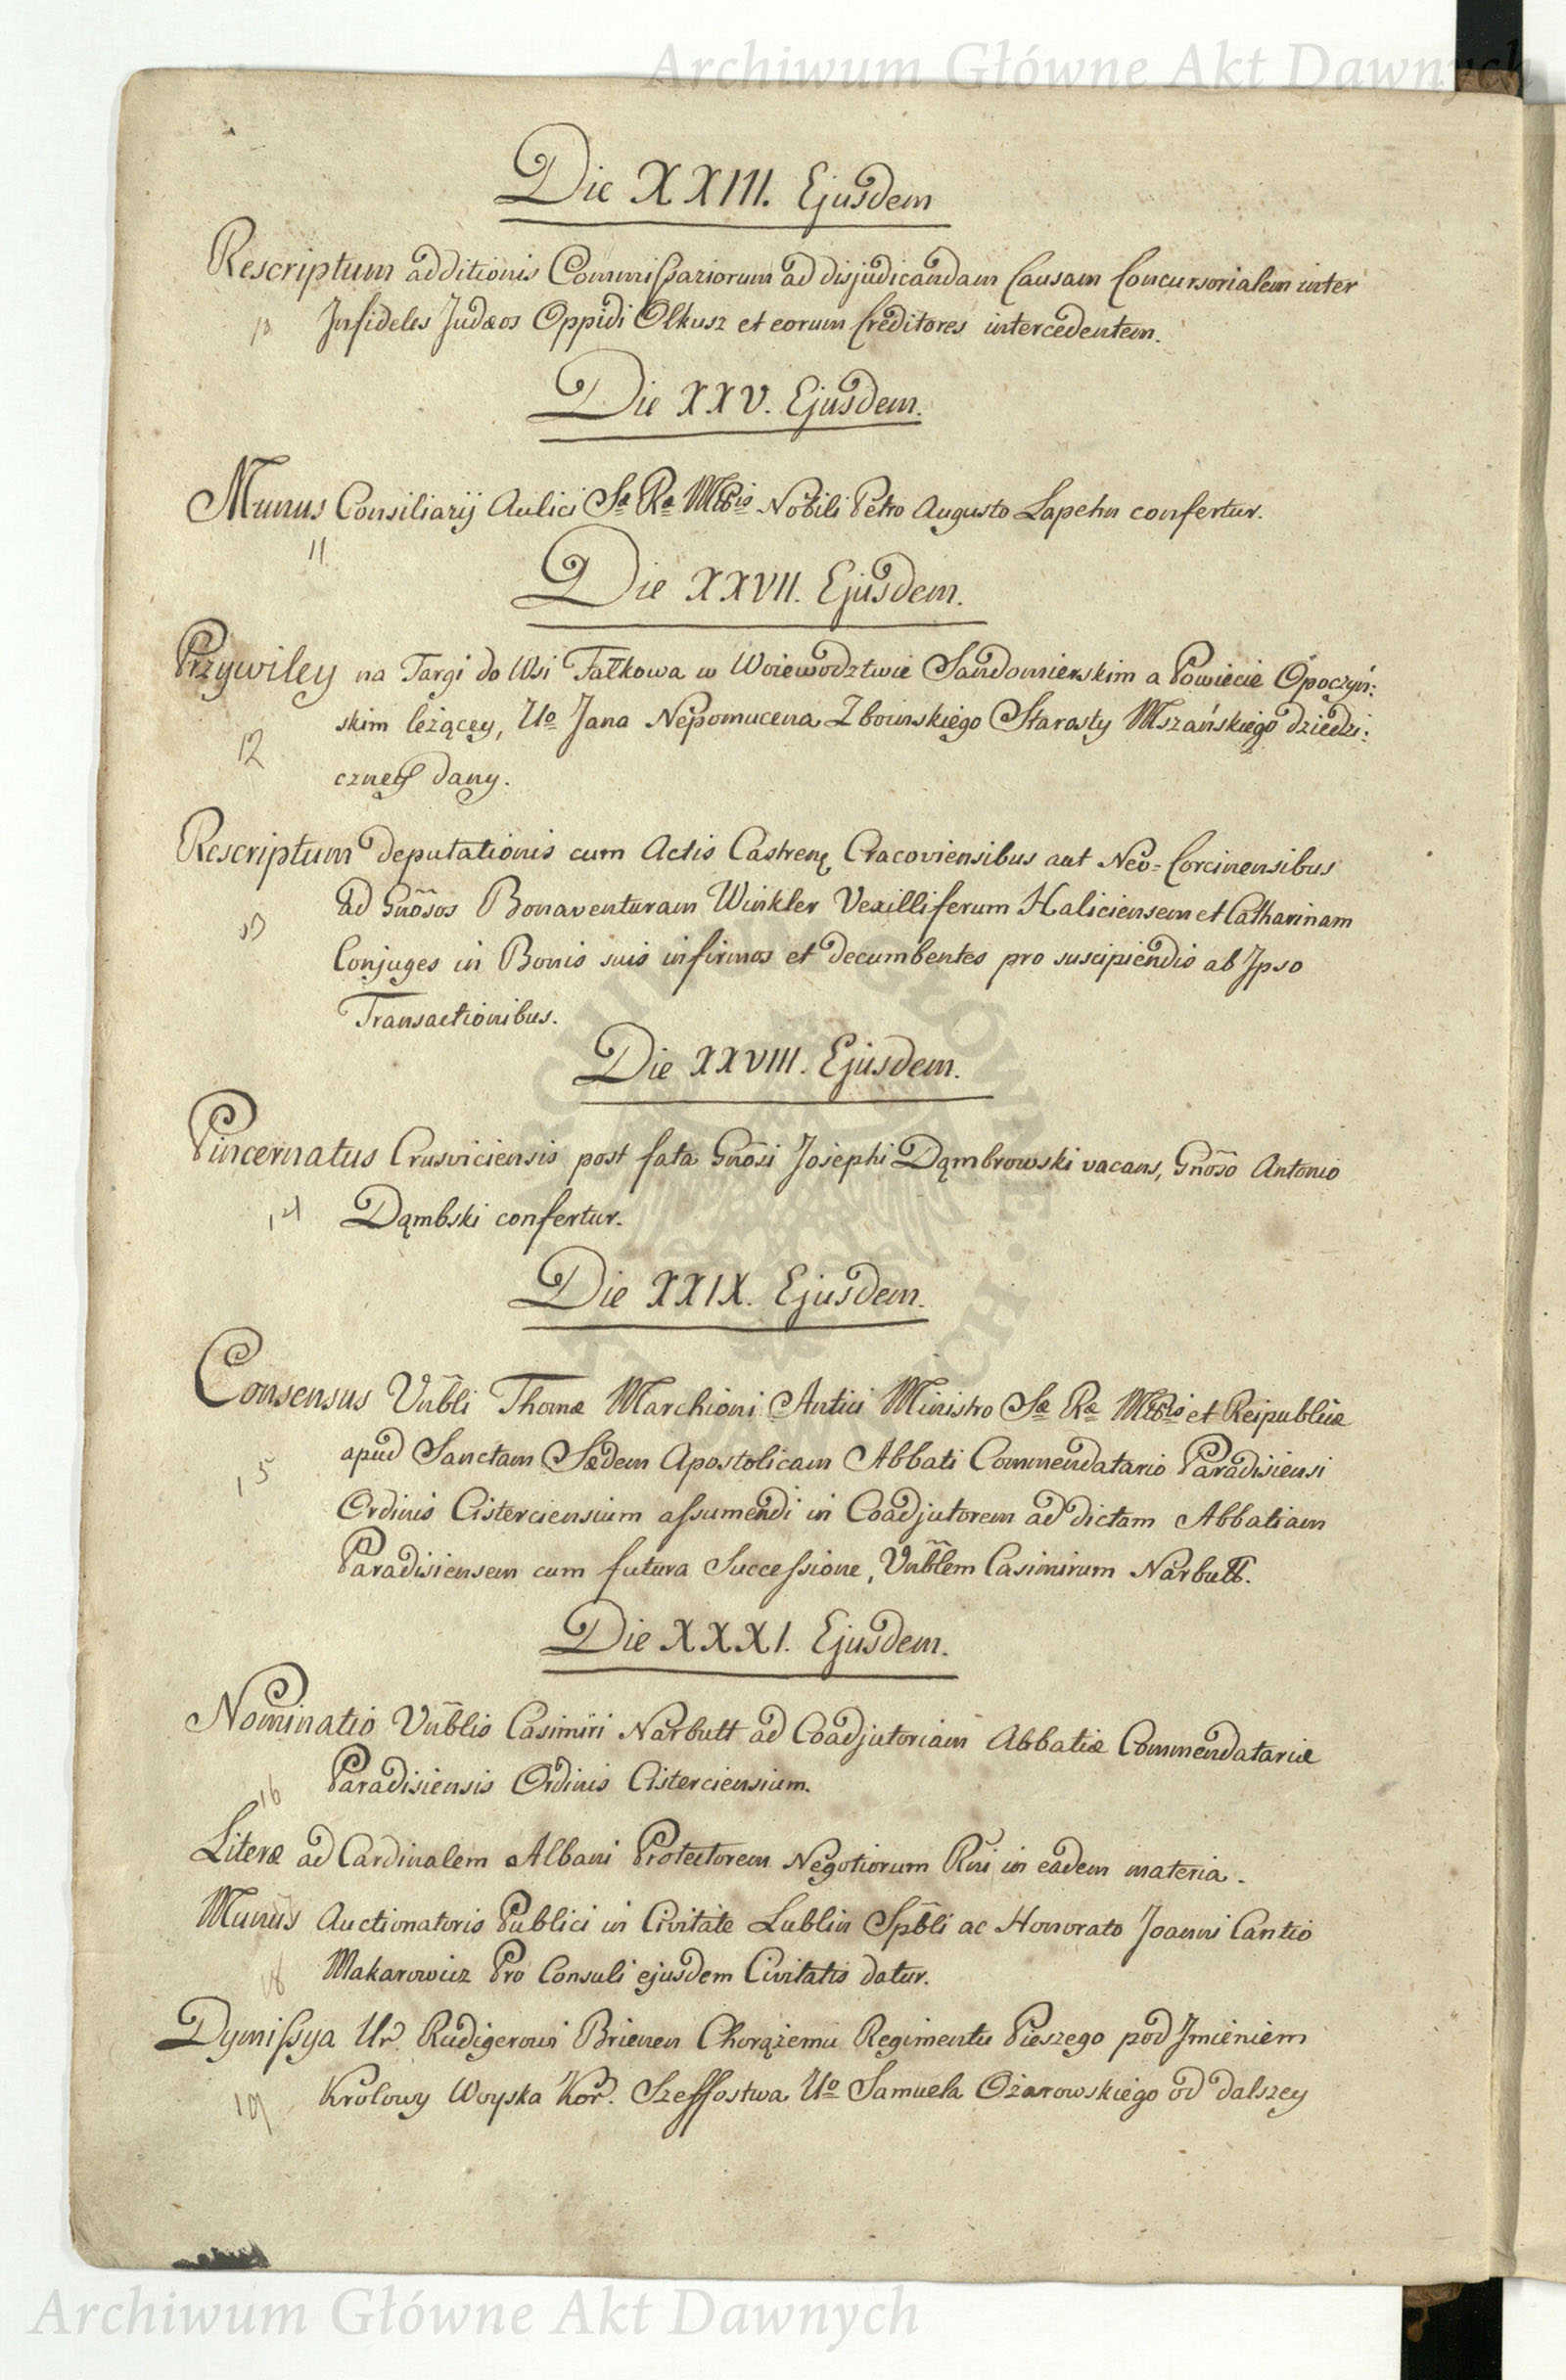 Archiwum Główne Akt Dawnych
Die XXIII. Ejusdem
Rescriptum additionis Commissariorum ad disjudicandam Causam Concursorialem inter
10 Infideles Judæos Oppidi Olkusz et eorum Creditores intercedentem.
Die XXV. Ejusdem.
Munus Consiliarij Aulici Sæ Ræ Mttis Nobili Petro Augusto Lapehn confertur.
11
Die XXVII. Ejusdem.
Przywiley na Targi do Wsi Fałkowa w Woiewodztwie Sandomierskim a Powiecie Opoczyń:
12 skim leżącey, Uo Jana Nepomucena Zboinskiego Starosty Mszańskiego dziedzi:
czney dany.
Rescriptum deputationis cum Actis Castren Cracoviensibus aut Neo-Corcinensibus
13 ad Gnõsos Bonaventuram Winkler Vexilliferum Haliciensem et Catharinam
Conjuges in Bonis suis infirmos et decumbentes pro suscipiendis ab Ipso
Transactionibus.
Die XXVIII. Ejusdem.
Pincernatus Crusviciensis post fata Gnõsi Josephi Dąmbrowski vacans, Gnõso Antonio
14 Dąmbski confertur.
Die XXIX. Ejusdem.
Consensus Vnb̃li Thomæ Marchioni Antici Ministro Sæ Ræ Mttis et Reipublicæ
apud Sanctam Sædem Apostolicam Abbati Commendatario Paradisiensi
15 Ordinis Cisterciensium assumendi in Coadjutorem ad dictam Abbatiam
Paradisiensem cum futura Successione, Vnb̃lem Casimirum Narbutt.
Die XXXI. Ejusdem.
Nominatio Vnb̃lis Casimiri Narbutt ad Coadjutoriam Abbatiæ Commendatariæ
16 Paradisiensis Ordinis Cisterciensium.
Literæ ad Cardinalem Albani Protectorem Negotiorum Rni in eadem materia.
Munus Auctionatoris Publici in Civitate Lublin Spb̃li ac Honorato Joanni Cantio
18 Makarowicz Pro Consuli ejusdem Civitatis datur.
Dymissya Ur. Rudigerowi Brienen Chorążemu Regimentu Pieszego pod Jmieniem
19 Krolowy Woyska Kor. Szeffostwa Uo Samuela Ożarowskiego od dalszey
Archiwum Główne Akt Dawnych